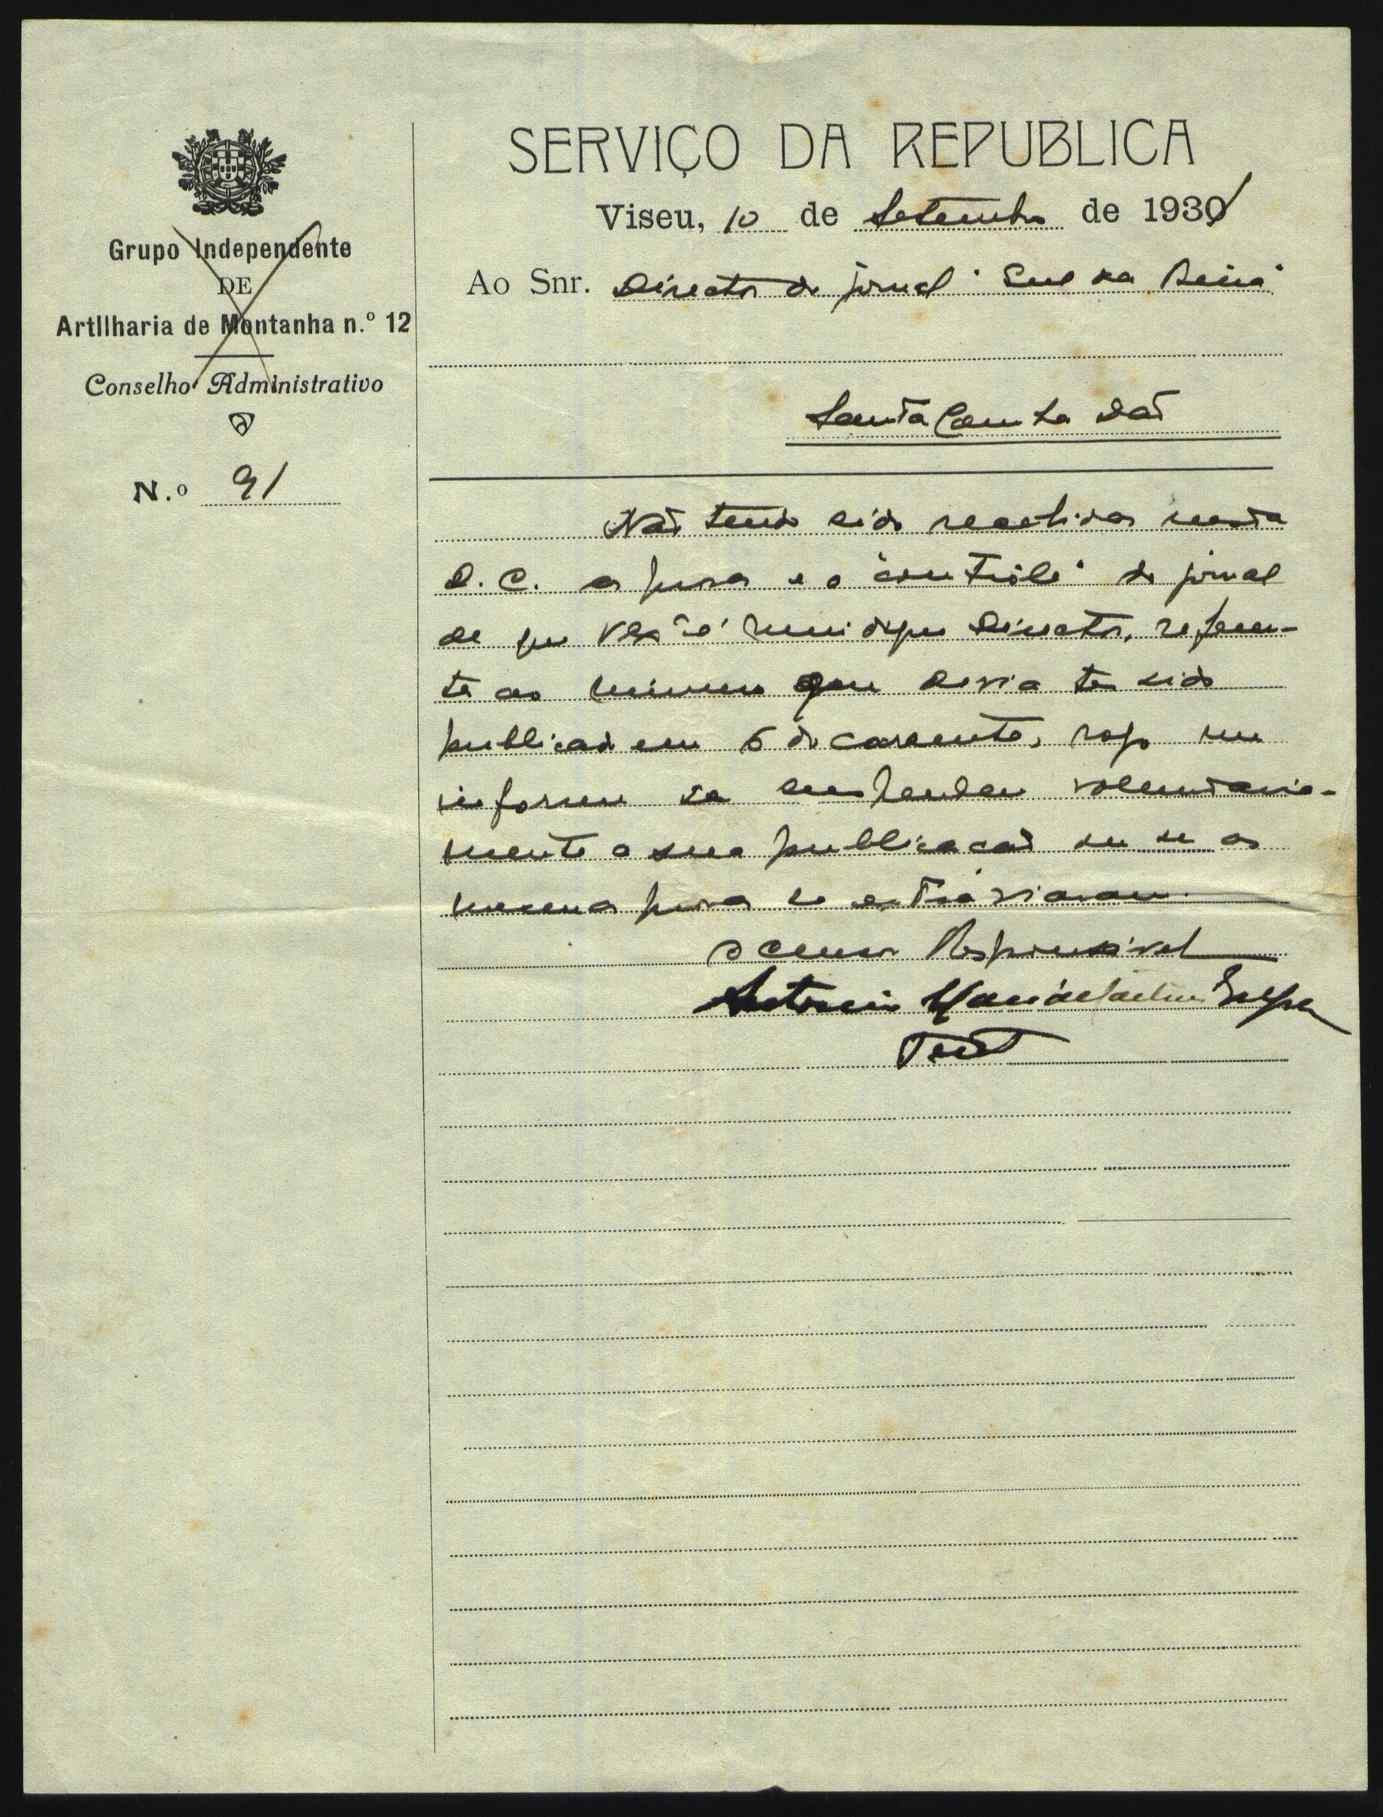 SERVIÇO DA REPUBLICA
Viseu, 10 de Setembro de 1931
Grupo Independente
DE
Artilharia de Montanha n.º 12
Conselho Administrativo
N.º 91
Ao Snr. Director do jornal "Sul da Beira"
Santa Comba Dão
Não tendo sido recebidas nesta
D. C. as provas e o "contrôle" do jornal
de que V. Exª é mui digno Director, referen-
te ao número que devia ter sido
publicado em 6 do corrente, rogo me
informe se suspendeu voluntaria-
mente a sua publicação ou se as
mesmas provas se extraviaram.
O censor Responsável
Antonio
Tent